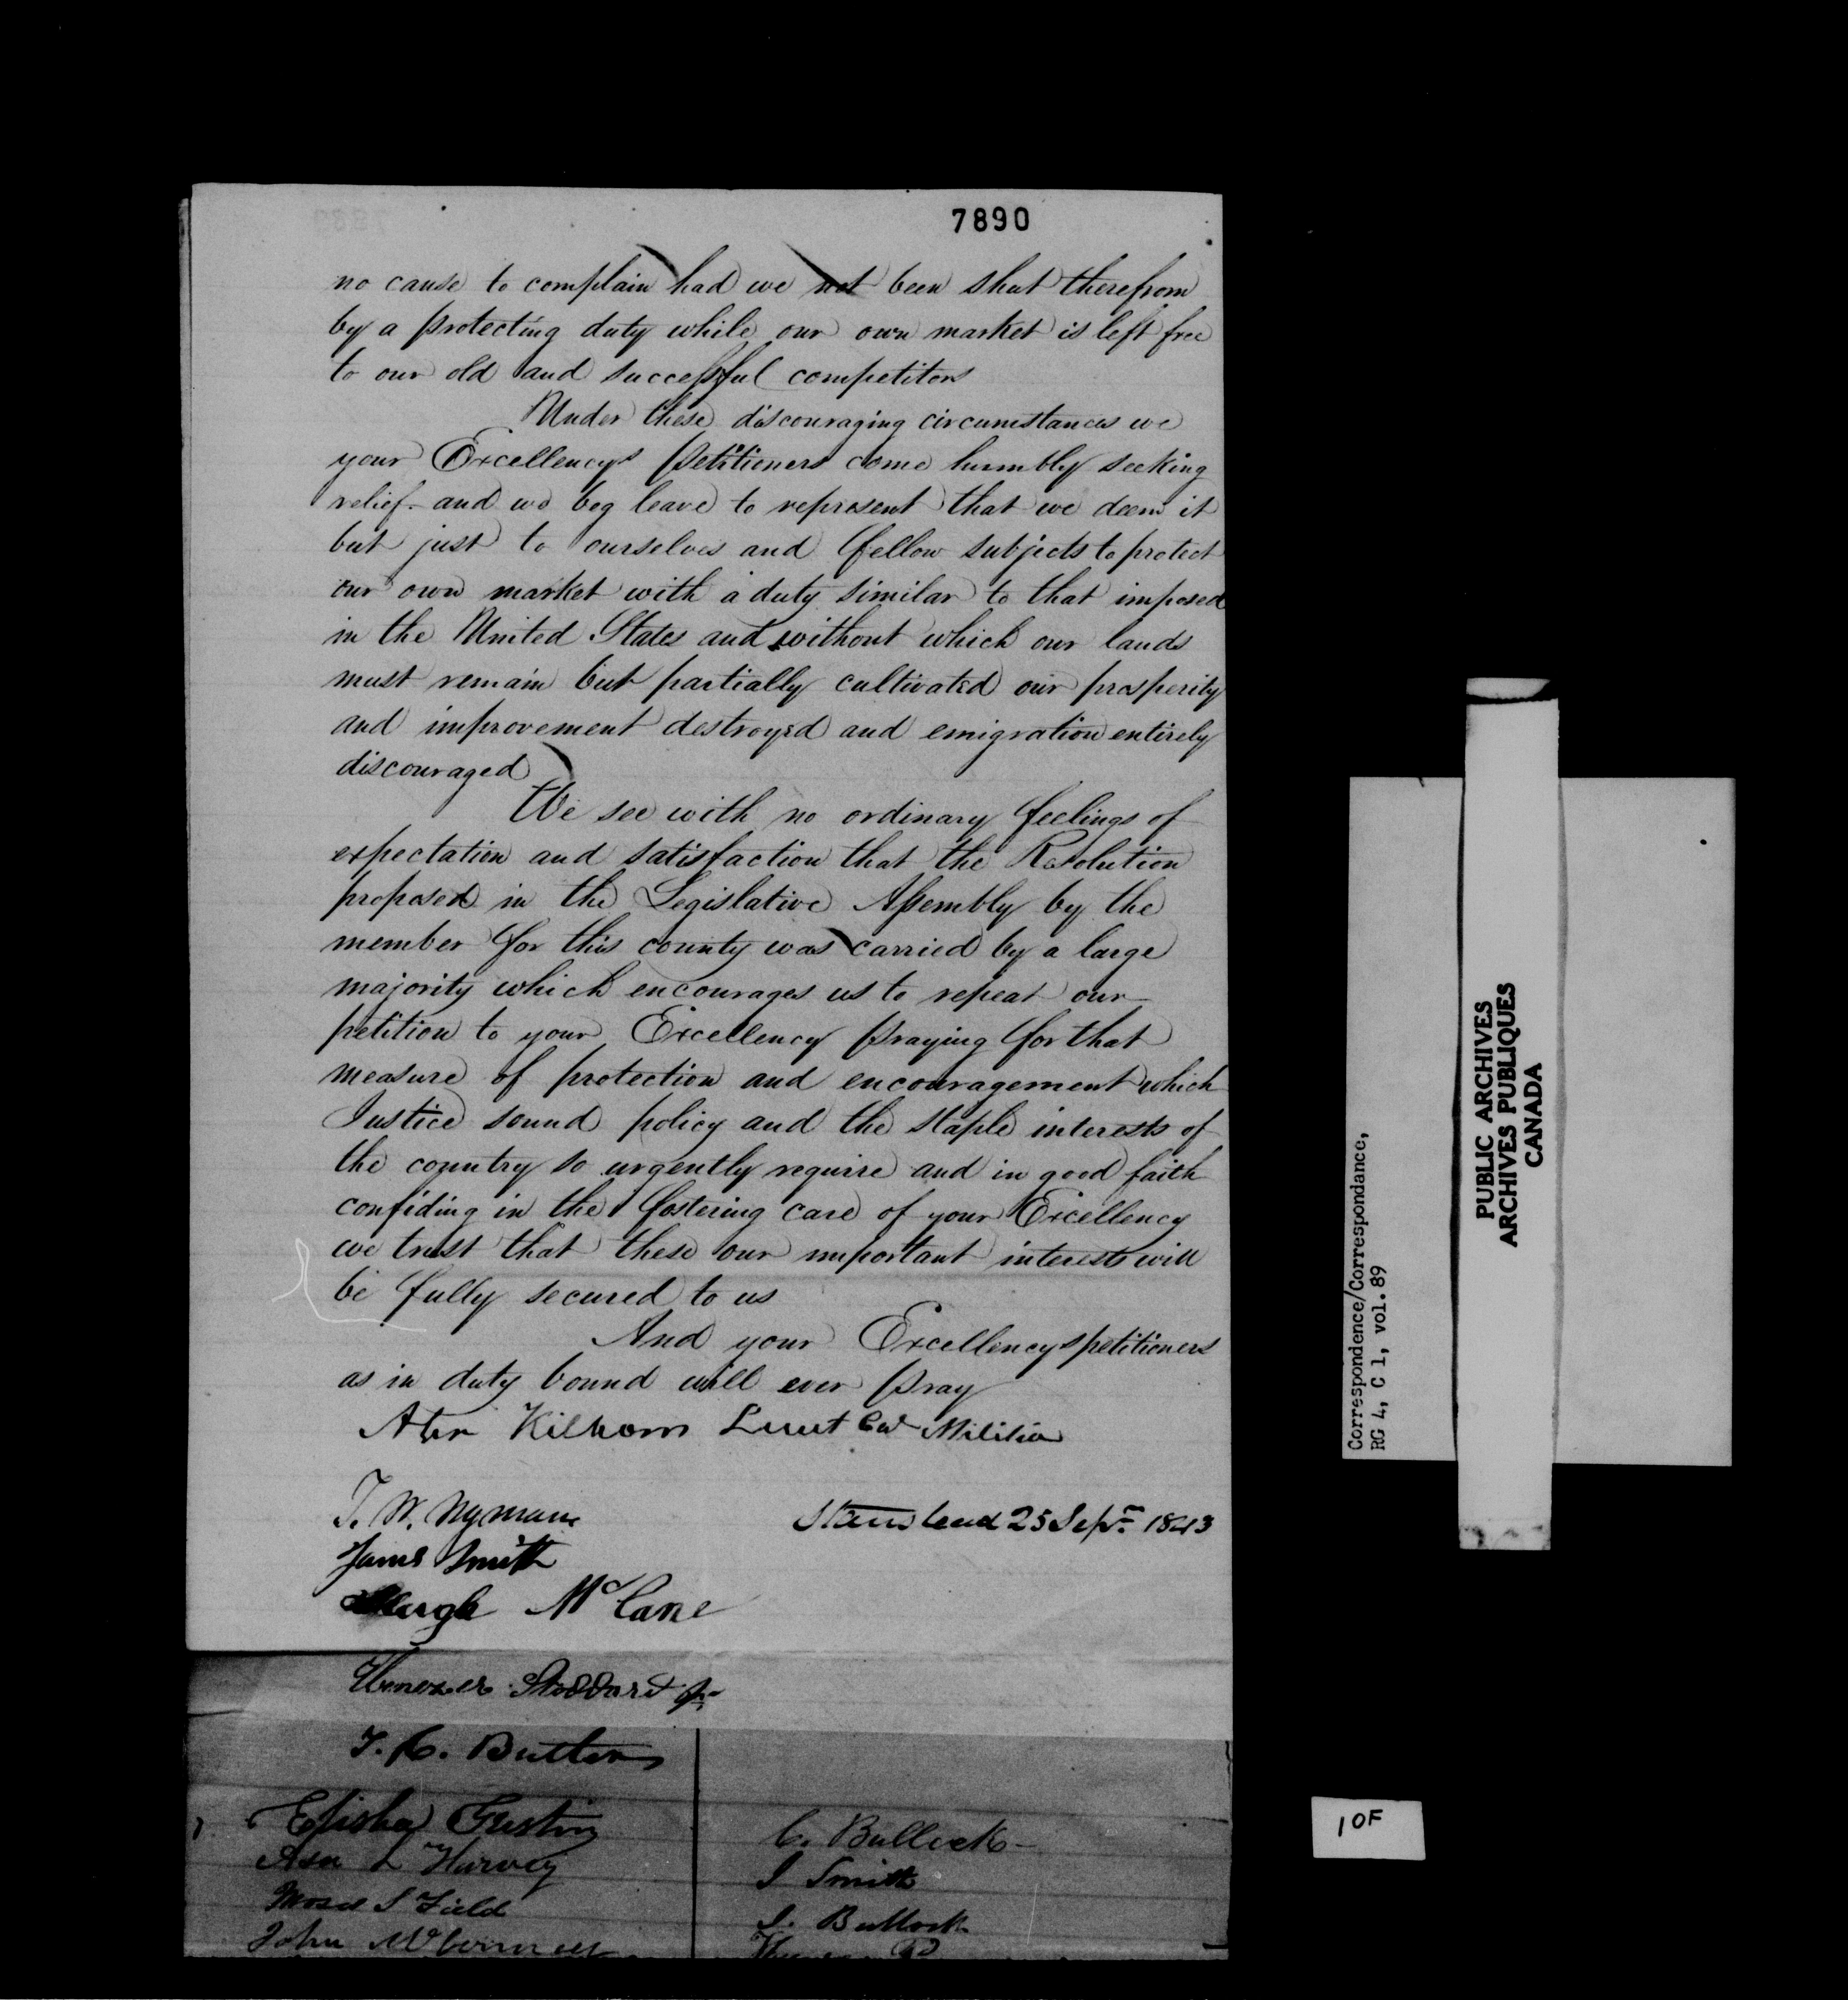 7890
no cause to complain had we not been shut therefrom
by a protecting duty while our own market is left free
to our old and successful competitors
Under these discouraging circumstances we
your Excellencys petitioners come humbly seeking
relief - and we beg leave to represent that we deem it
but just to ourselves and fellow subjects to protect
our own market with a duty similar to that imposed
in the United States and without which our lands
must remain but partially cultivated our prosperity
and improvement destroyed and emigration entirely
discouraged
We see with no ordinary feelings of
expectation and satisfaction that the Resolution
proposed in the Legislative Assembly by the
member for this county was carried by a large
majority which encourages us to repeat our
petition to your Excellency praying for that
measure of protection and encouragement which
Justice sound policy and the staple interests of
the country so urgently require and in good faith
confiding in the fostering care of your Excellency
we trust that these our important interests will
be fully secured to us
And your Excellencys petitioners
as in duty bound will ever pray
Kilborn Lieut Col Militia
Stanstead 25 Sept 1843
James Smith
Hugh McCane
Ebenezer Stoddard Jr
T. C. Butters
Elisha Gustin
Asa L Harvey
Moses S Field
John
C. Bullock
I Smith
I. Bullock
Correspondence/Correspondance,
RG 4, C 1, vol. 89
PUBLIC ARCHIVES
ARCHIVES PUBLIQUES
CANADA
10F